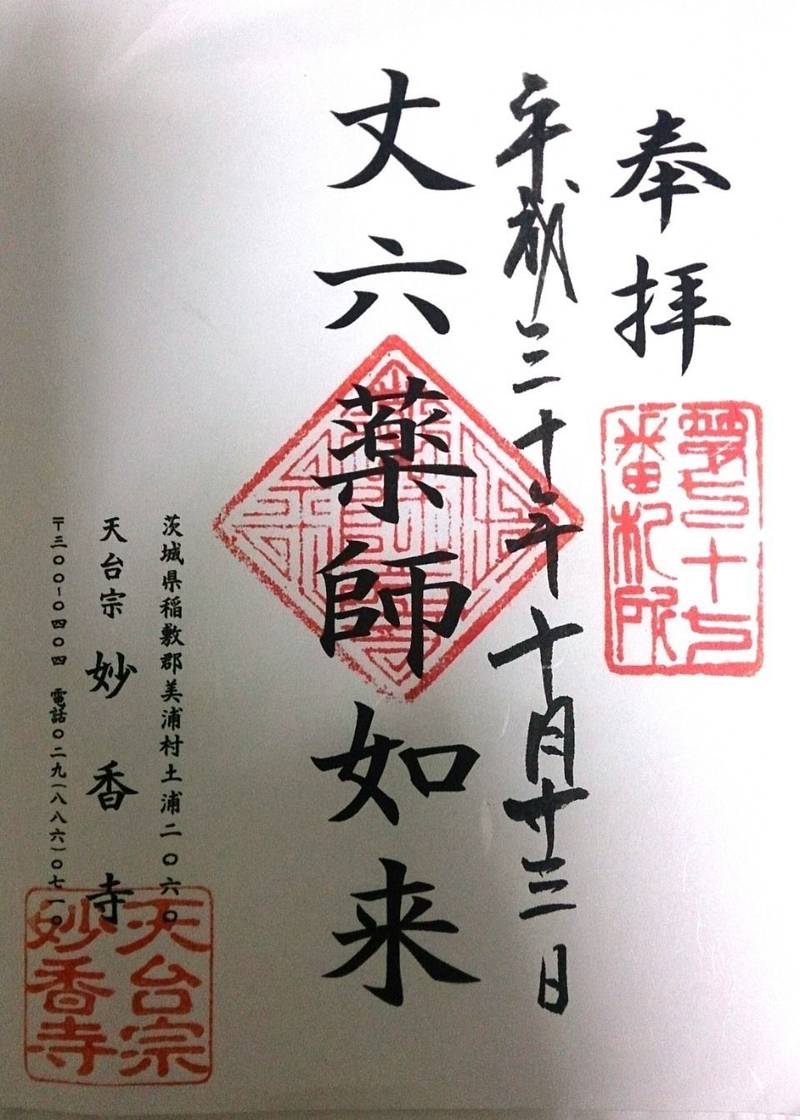 奉拝
十七
番札所
平成三十年十月廿三日
丈六薬師如来
茨城県稲敷郡美浦村土浦二〇六〇
天台宗 妙香寺
〒三〇〇-〇四〇四 電話〇二九(八八六)〇七一〇
天台宗
妙香寺